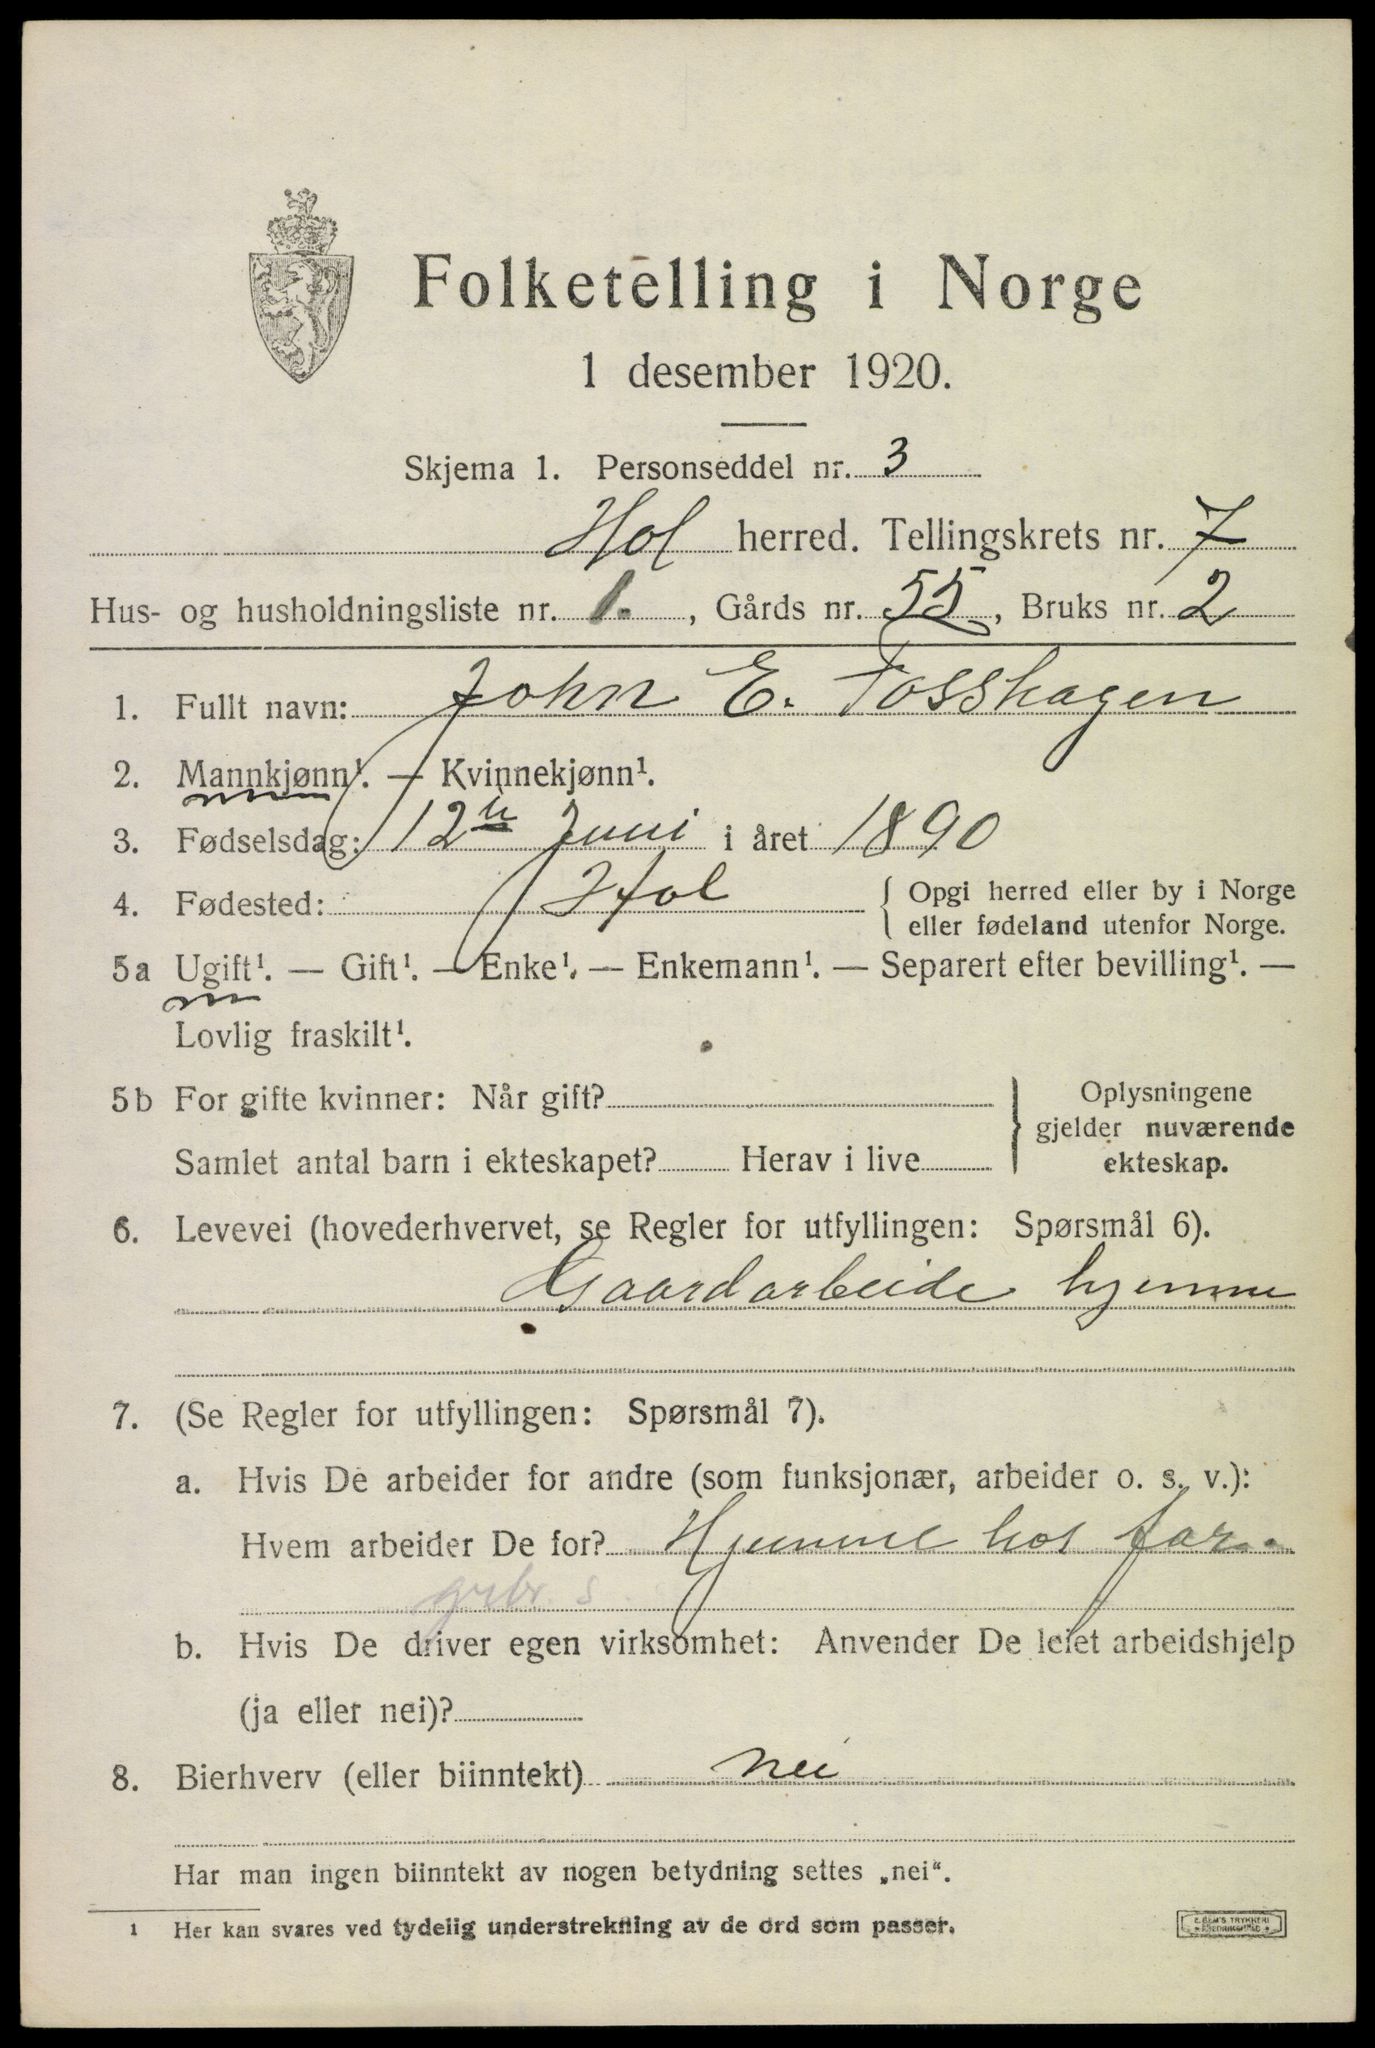 Folketelling i Norge
1 desember 1920.
Skjema 1. Personseddel nr. 3
Hol herred. Tellingskrets nr. 7
Hus- og husholdningsliste nr. 1. , Gårds nr. 55, Bruks nr. 2
1. Fullt navn: John E. Fosshagen
2. Mannkjønn¹. — Kvinnekjønn¹.
3. Fødselsdag: 12te Juni i året 1890
4. Fødested: Hol { Opgi herred eller by i Norge
eller fødeland utenfor Norge.
5a Ugift¹. — Gift¹. — Enke¹. — Enkemann¹. — Separert efter bevilling¹. —
Lovlig fraskilt¹.
5b For gifte kvinner: Når gift? } Oplysningene
gjelder nuværende
Samlet antal barn i ekteskapet? Herav i live ekteskap.
6. Levevei (hovederhvervet, se Regler for utfyllingen: Spørsmål 6).
Gaardarbeide hjemme
7. (Se Regler for utfyllingen: Spørsmål 7).
a. Hvis De arbeider for andre (som funksjonær, arbeider o. s. v.):
Hvem arbeider De for? Hjemme hos far.
grbr. s
b. Hvis De driver egen virksomhet: Anvender De leiet arbeidshjelp
(ja eller nei)?
8. Bierhverv (eller biinntekt) nei
Har man ingen biinntekt av nogen betydning settes „nei“.
¹ Her kan svares ved tydelig understrekning av de ord som passer.